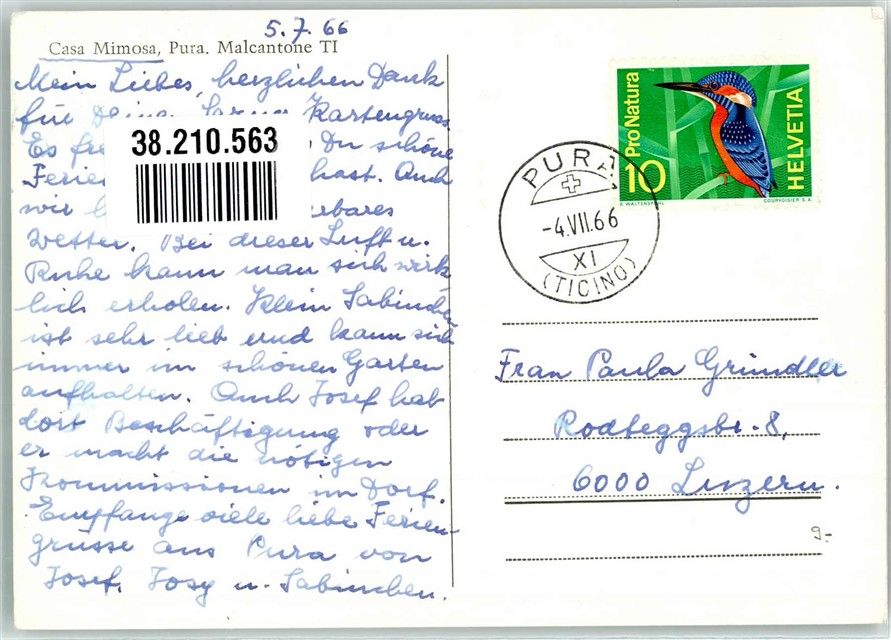 5.7.66
Casa Mimosa, Pura. Malcantone TI
Mein Liebes, herzlichen Dank
für Kartengruss.
Es Du schöne
Ferien hast. Auch
wir
Wetter. Bei dieser Luft u.
Ruhe kann man sich wirk-
lich erholen. Klein Sabinchen
ist sehr lieb und kann sich
immer im schönen Garten
aufhalten. Auch Josef hat
dort Beschäftigung oder
er macht die nötigen
Kommissionen im Dorf.
Empfange viele liebe Ferien-
grüsse aus Pura von
Josef, Josy u. Sabinchen.
38.210.563
Pro Natura
10
HELVETIA
COURVOISIER S.A.
PURA
-4.VII.66
XI
(TICINO)
Frau Paula Gründler
Rodteggstr. 8,
6000 Luzern.
9.-